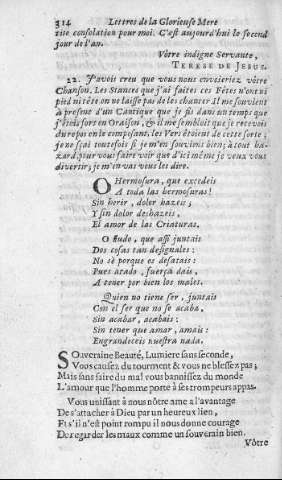 314 Lettres de la Glorieuse Mere
tite consolation pour moi. C'est aujourd'hui le second
jour de l'an.
Vôtre indigne Servante,
TERESE DE JESUS.
22. J'avois creu que vous nous envoieriez vôtre
Chanson. Les Stances que j'ai faites ces Fétes n'ont ni
pied ni téte on ne laisse pas de les chanter Il me souvient
à present d'un Cantique que je fis dans un temps que
j'étois fort en Oraison, & il me sembloit que je recevois
du repos en le composant, les Vers étoient de cette sorte,
je ne sçai toutefois si je m'en souviens bien; à tout ha-
zard, pour vous faire voir que d'ici méme je veux vous
divertir, je m'en vais vous les dire.
O Hermosura, que excedeis
A toda las hermosuras!
Sin herir, dolor hazeis;
Y sin dolor deshazeis,
El amor de las Criaturas.
O ñudo, que assi juntais
Dos cosas tan desiguales:
No sè porque os desatais:
Pues atado, fuerça dais,
A tener por bien los males.
Quien no tiene ser, juntais
Con el ser que no se acaba,
Sin acabar, acabais:
Sin tener que amar, amais:
Engrandeceis nuestra nada.
SOuveraine Beauté, Lumiere sans seconde,
Vous causez du tourment & vous ne blessez pas;
Mais sans faire du mal vous bannissez du monde
L'amour que l'homme porte à ses trompeurs appas.
Vous unissant à nous nôtre ame a l'avantage
De s'attacher à Dieu par un heureux lien,
Et s'il n'est point rompu il nous donne courage
De regarder les maux comme un souverain bien.
Vôtre